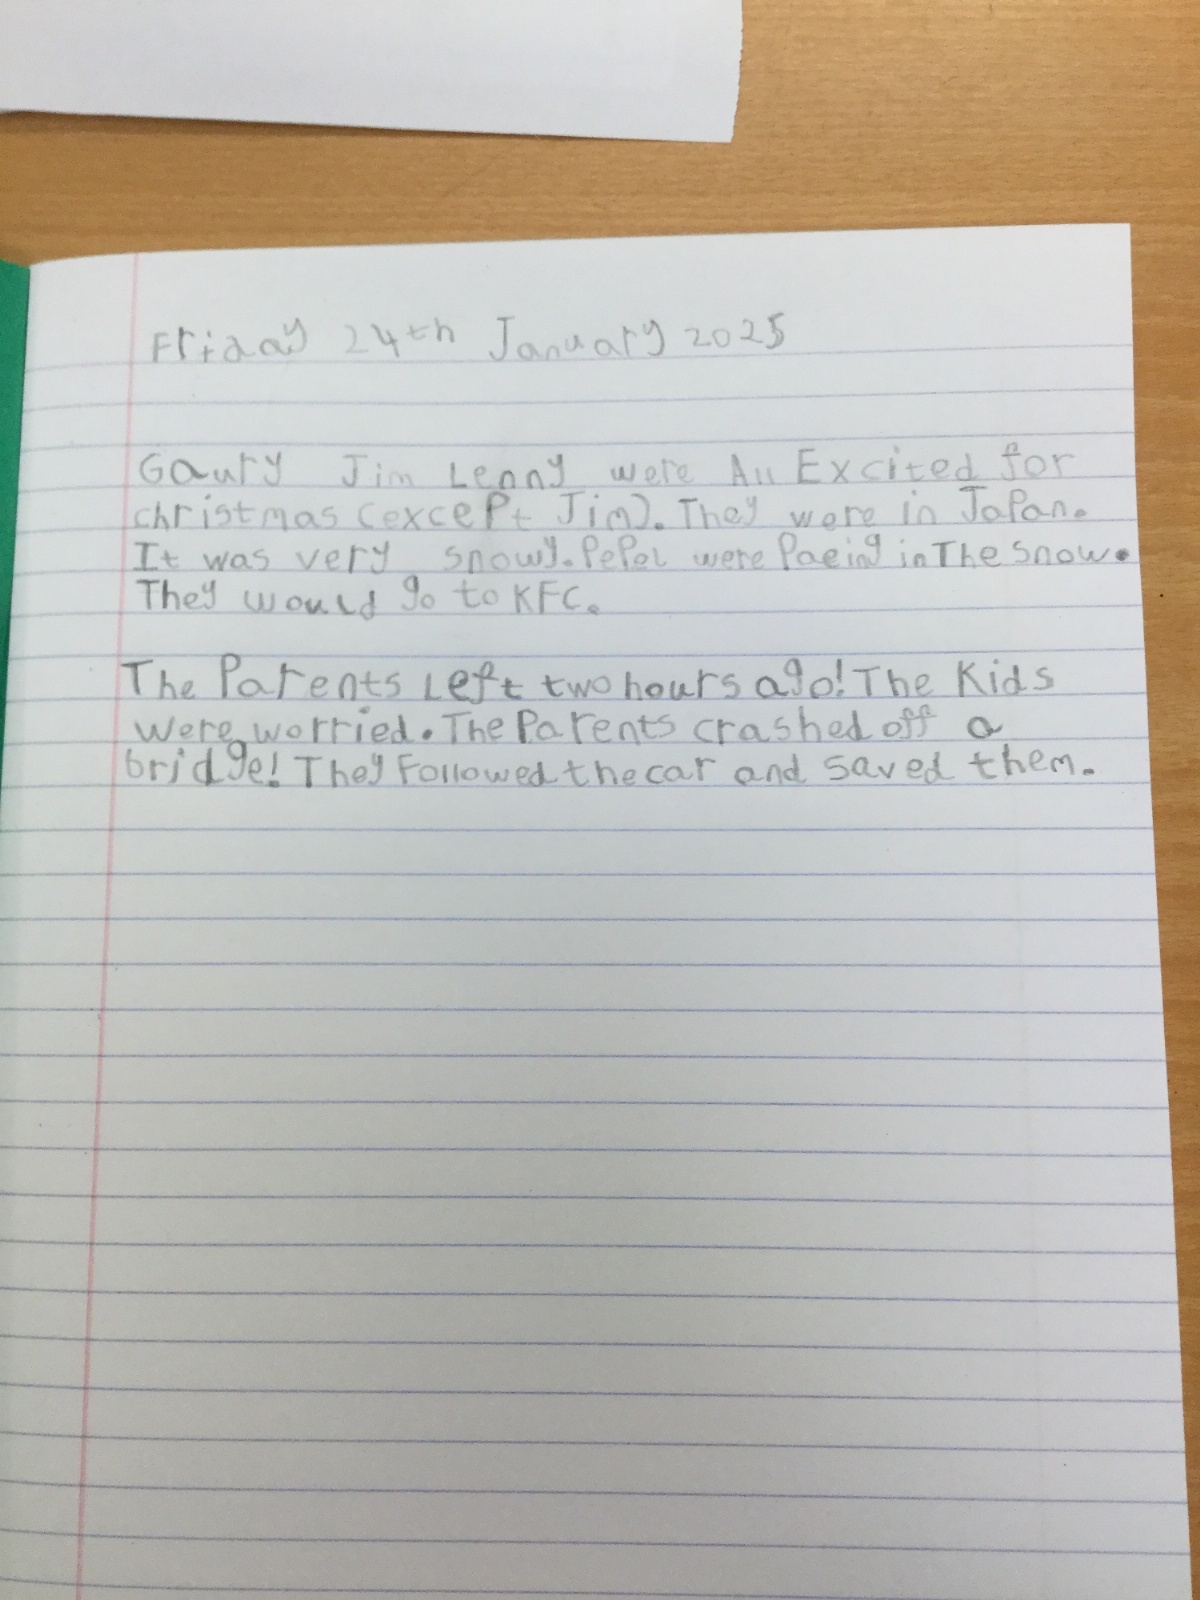 Friday 24th January 2025
Gaury Jim Lenny were All Excited for
christmas (except Jim). They were in Japan.
It was very snowy. Pepol were Paeing in The snow.
They would go to KFC.
The Parents Left two hours ago! The Kids
were worried. The Parents crashed off a
bridge! They Followed the car and saved them.